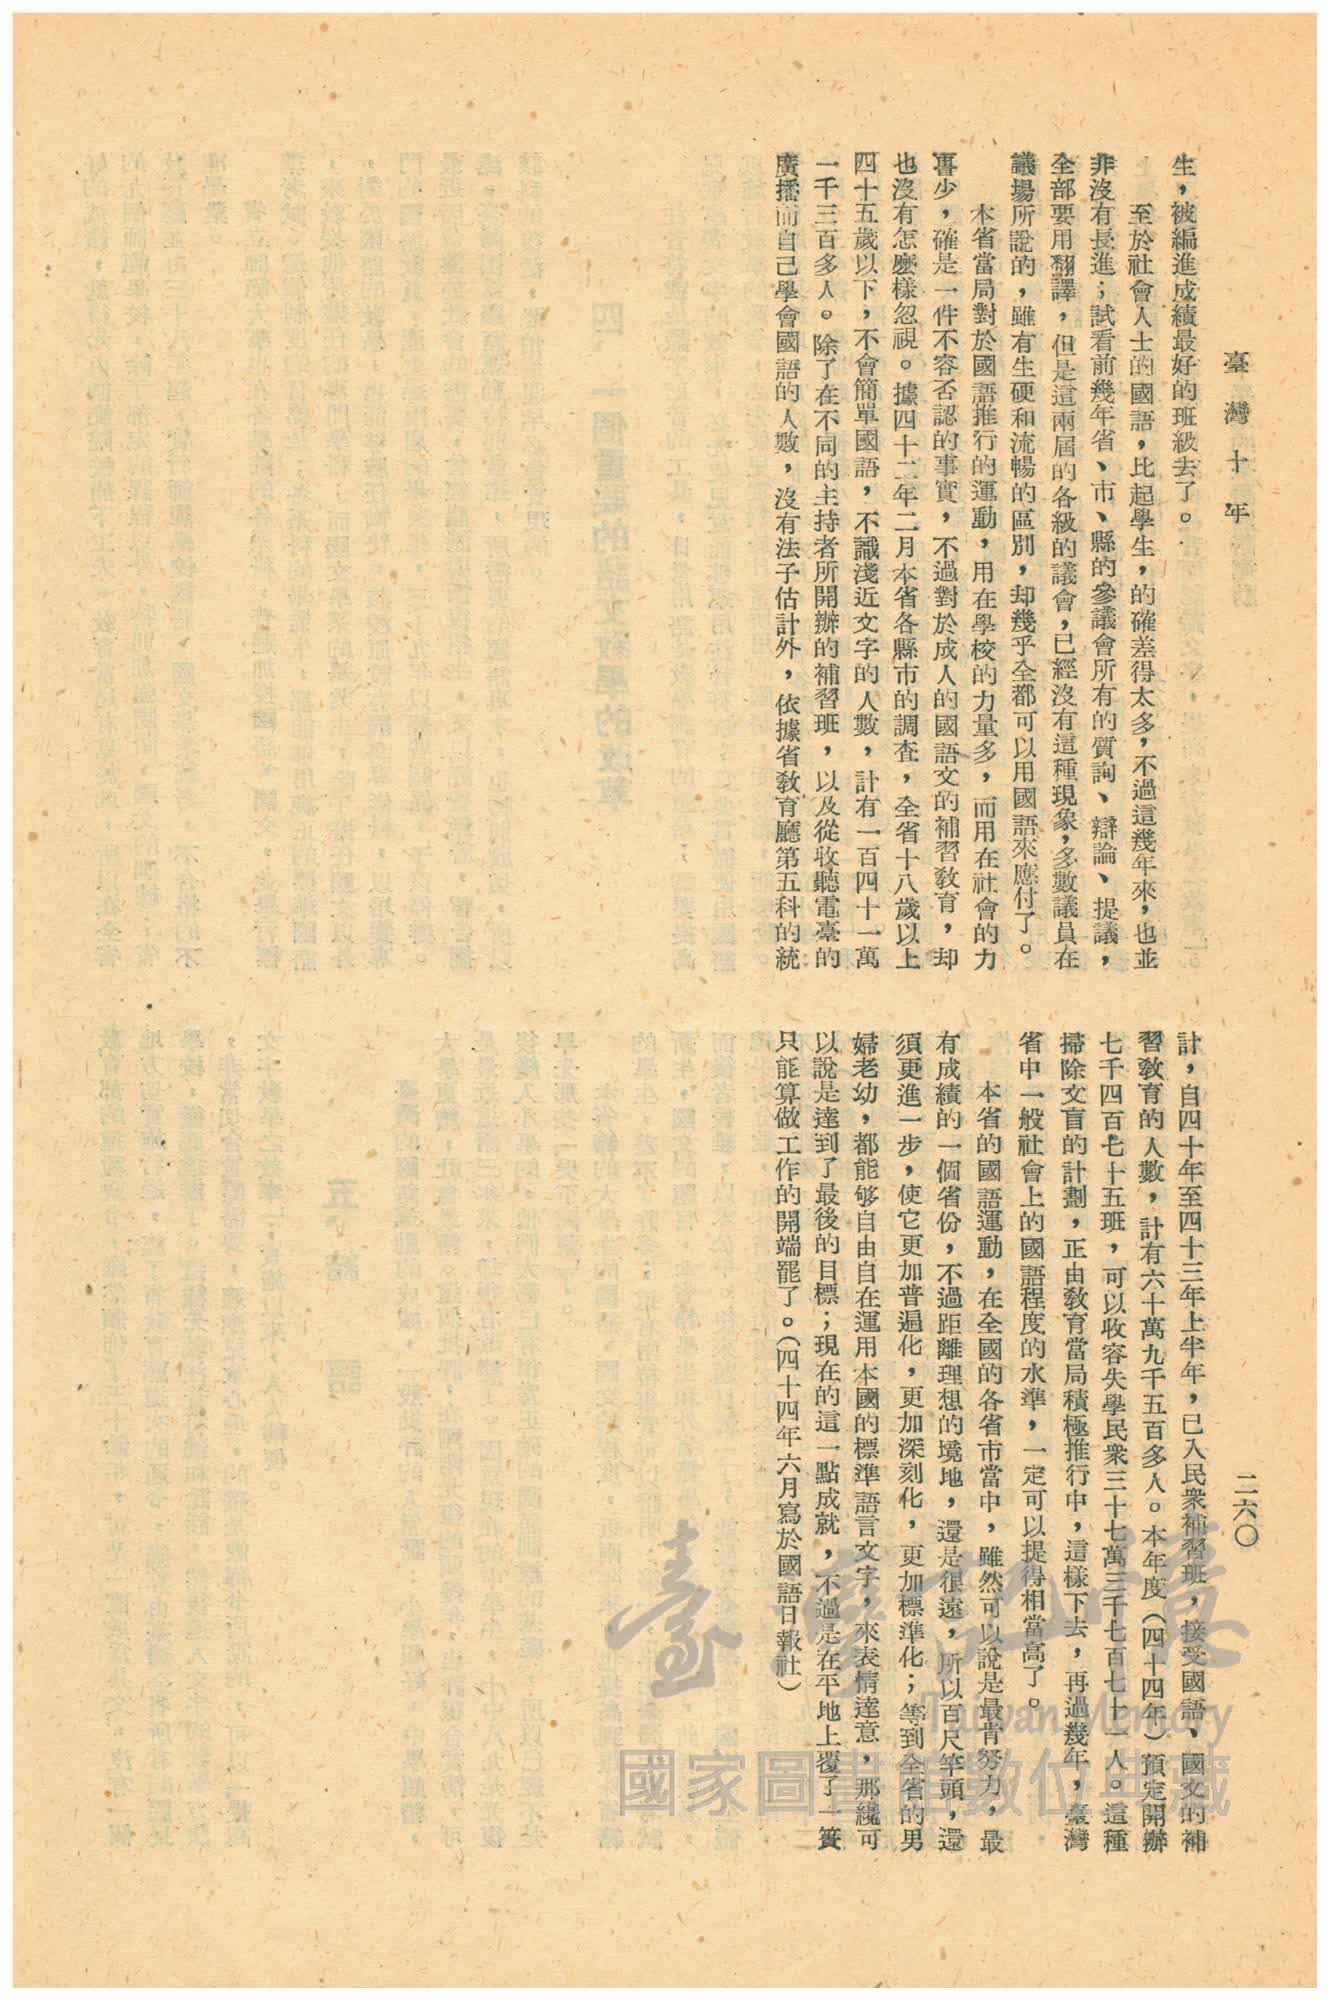 臺灣十年
二六〇
生，被編進成績最好的班級去了。
至於社會人士的國語，比起學生，的確差得太多，不過這幾年來，也並
非沒有長進；試看前幾年省、市、縣的參議會所有的質詢、辯論、提議，
全部要用翻譯，但是這兩屆的各級的議會，已經沒有這種現象，多數議員在
議場所說的，雖有生硬和流暢的區別，却幾乎全都可以用國語來應付了。
本省當局對於國語推行的運動，用在學校的力量多，而用在社會的力
量少，確是一件不容否認的事實，不過對於成人的國語文的補習教育，却
也沒有怎麼樣忽視。據四十二年二月本省各縣市的調查，全省十八歲以上
四十五歲以下，不會簡單國語，不識淺近文字的人數，計有一百四十一萬
一千三百多人。除了在不同的主持者所開辦的補習班，以及從收聽電臺的
廣播而自己學會國語的人數，沒有法子估計外，依據省教育廳第五科的統
計，自四十年至四十三年上半年，已入民衆補習班，接受國語、國文的補
習教育的人數，計有六十萬九千五百多人。本年度（四十四年）預定開辦
七千四百七十五班，可以收容失學民衆三十七萬三千七百七十一人。這種
掃除文盲的計劃，正由教育當局積極推行中，這樣下去，再過幾年，臺灣
省中一般社會上的國語程度的水準，一定可以提得相當高了。
本省的國語運動，在全國的各省市當中，雖然可以說是最肯努力，最
有成績的一個省份，不過距離理想的境地，還是很遠，所以百尺竿頭，還
須更進一步，使它更加普遍化，更加深刻化，更加標準化；等到全省的男
婦老幼，都能够自由自在運用本國的標準語言文字，來表情達意，那纔可
以說是達到了最後的目標；現在的這一點成就，不過是在平地上覆了一簣
只能算做工作的開端罷了。（四十四年六月寫於國語日報社）
臺灣記憶
Taiwan Memory
國家圖書館數位典藏